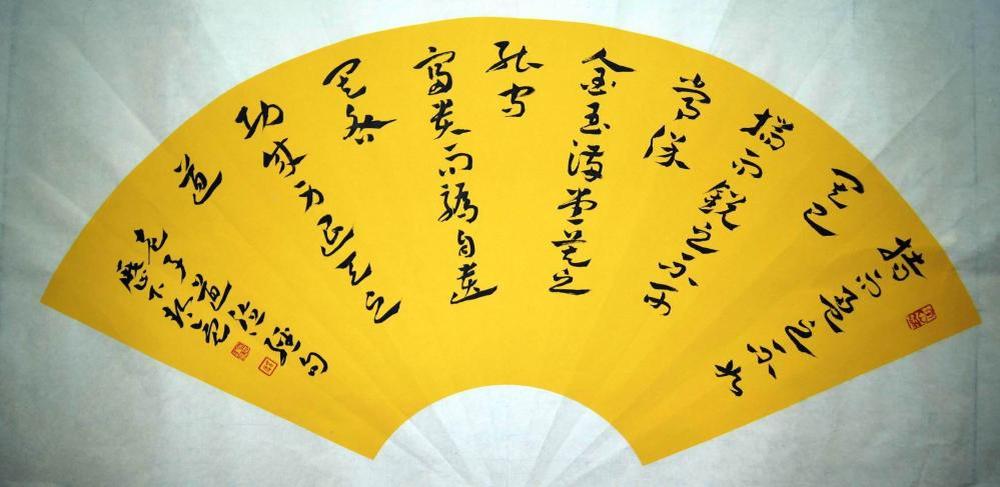 持而盈之不如
其已
揣而銳之不可
常保
金玉滿堂莫之
能守
富貴而驕自遺
其咎
功成身退天之
道
老子道德經句